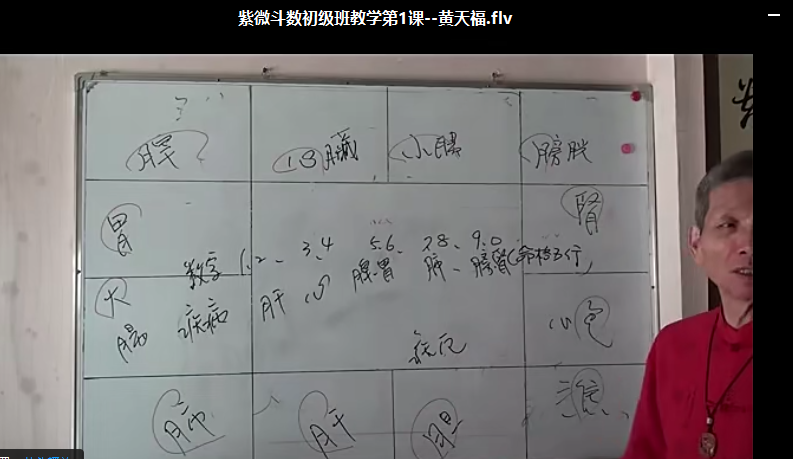 紫微斗数初级班教学第1课--黄天福.flv
脾 心臟 小腸 膀胱
胃 腎
数字 1.2、3.4 5.6、7.8、9.0
疾病 肝 心 脾胃 肺、膀腎(命格五行)
大腸 心包
肺 肝 胆 三焦